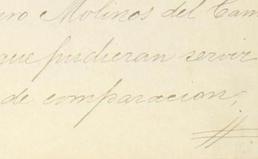 uro Molinos del Cam
que pudieran servir
de comparacion;